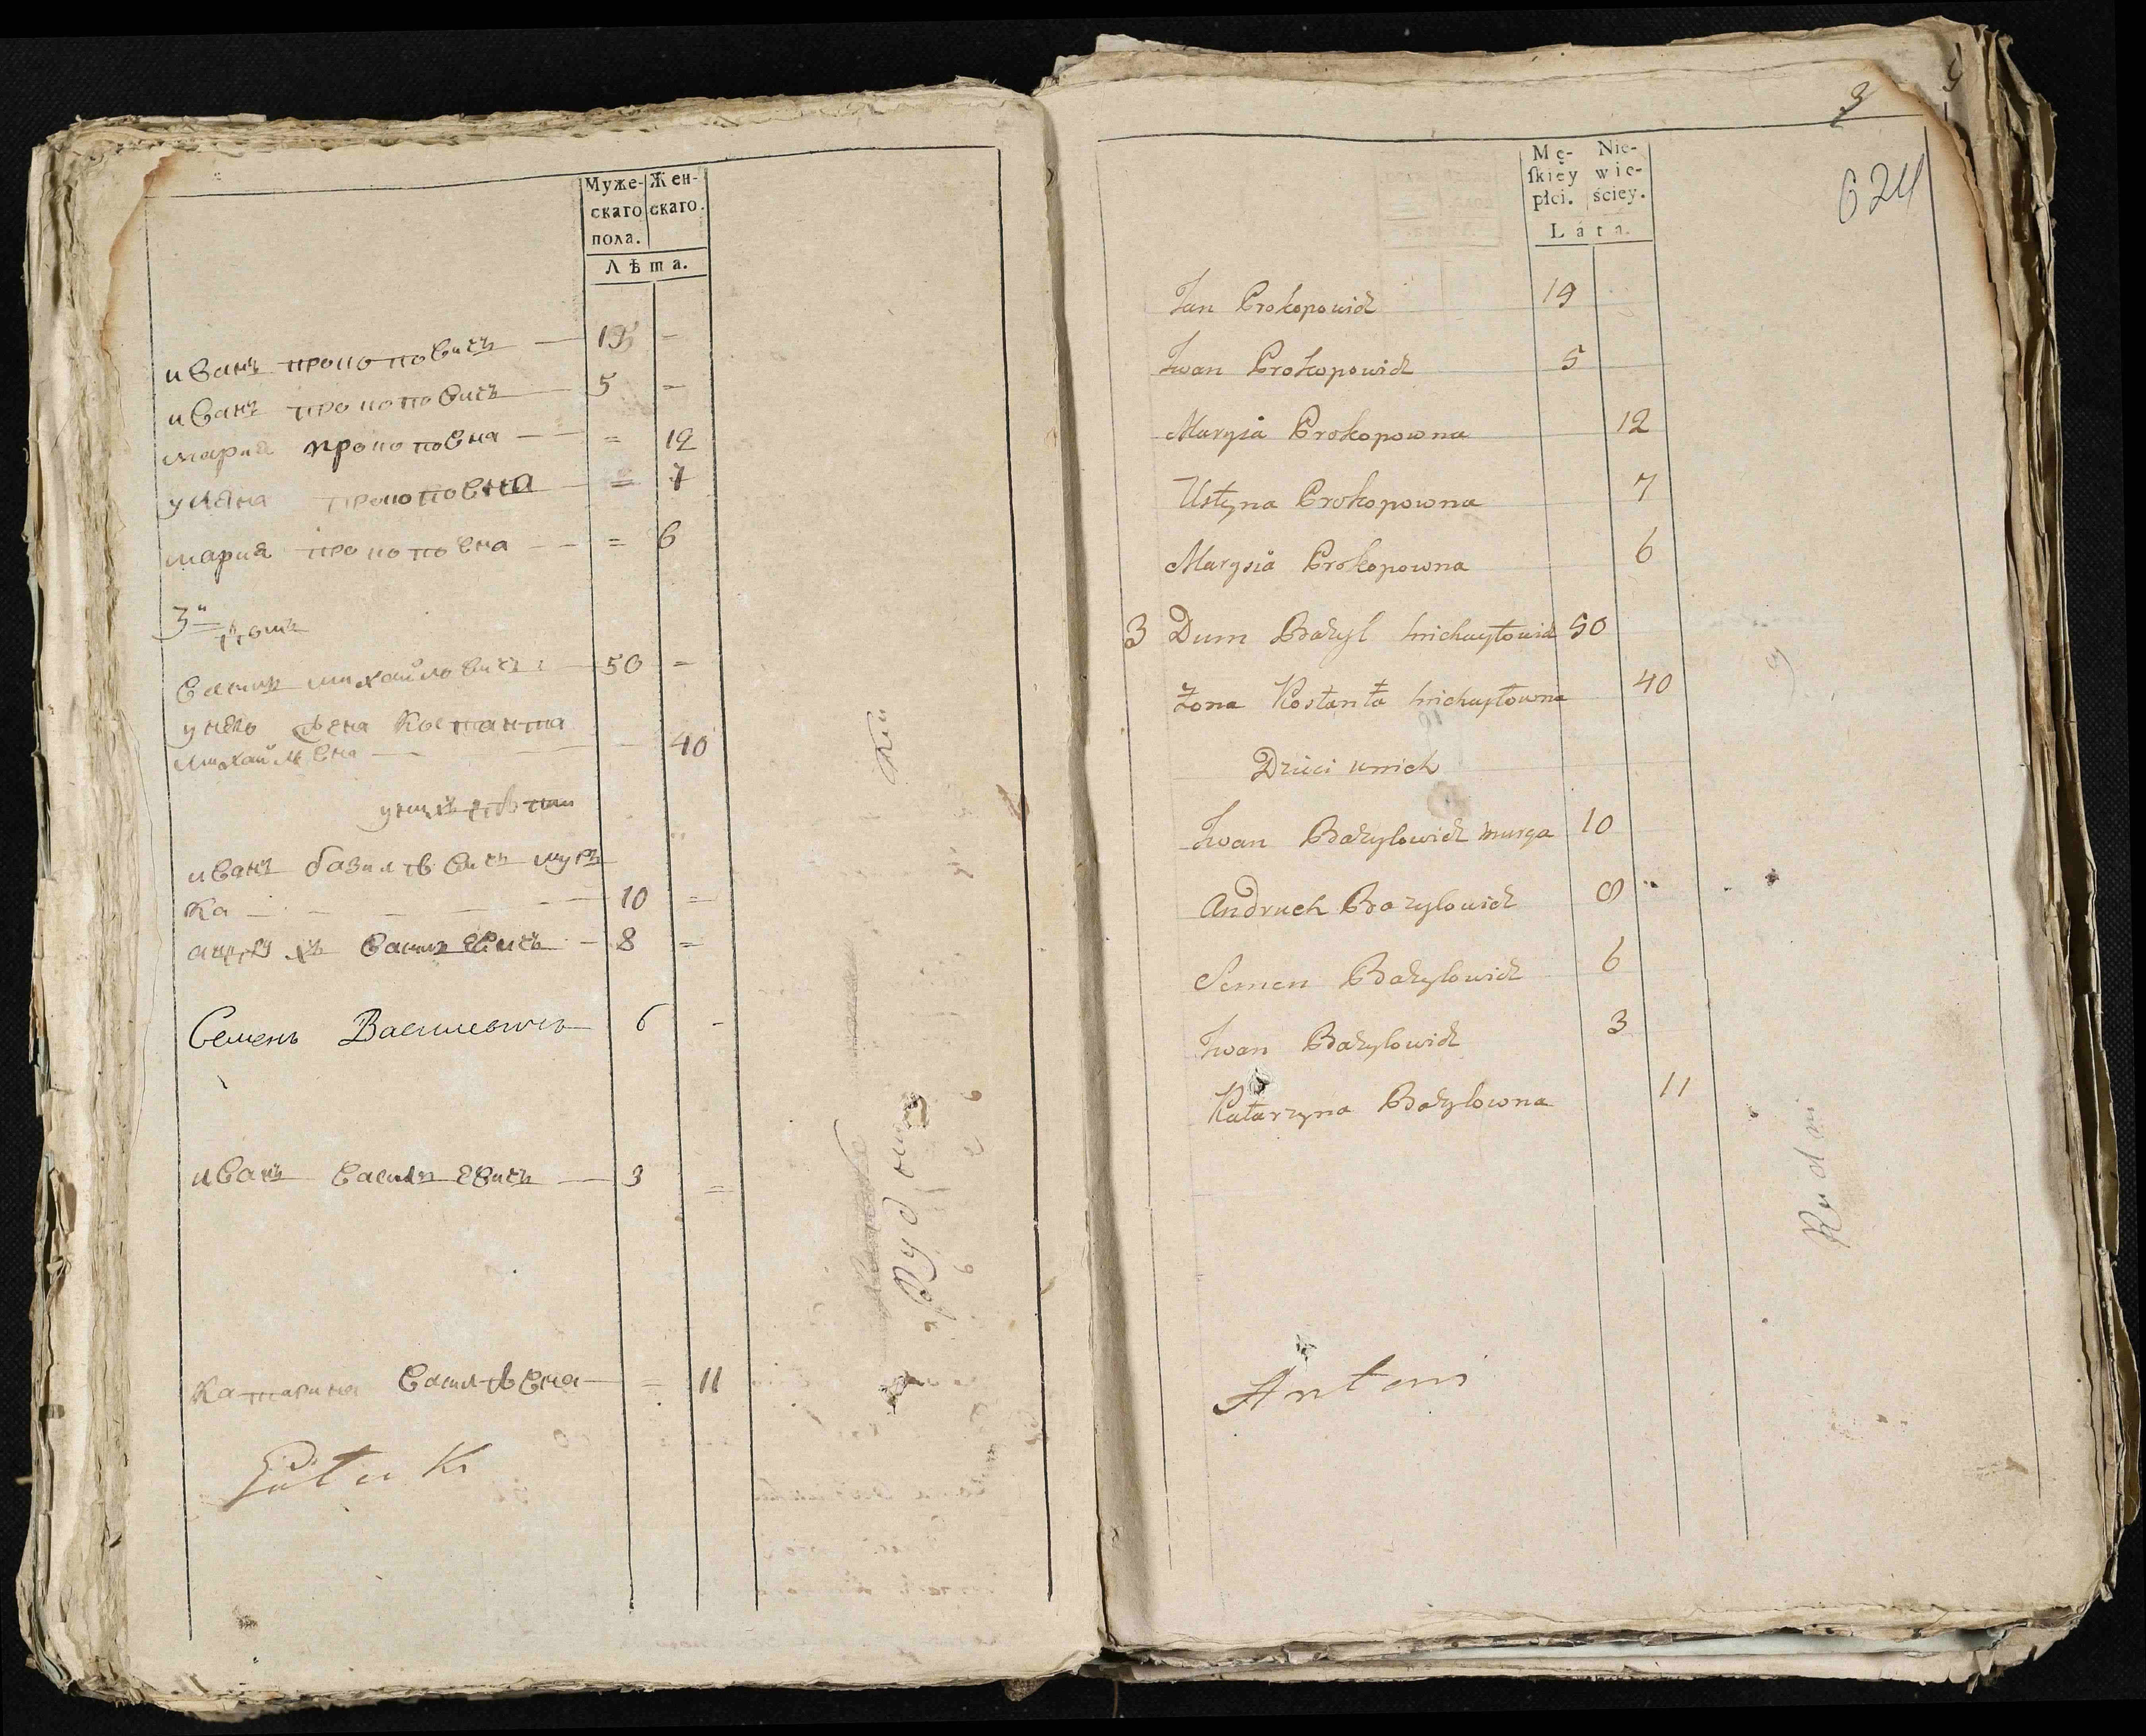 Муже- Жен-
скаго скаго.
пола.
Лѣта.
иванъ прокоповичъ — 19 -
иванъ прокоповичъ — 5 =
мария прокоповна — = 12
уляна прокоповна = 7
мария прокоповна — = 6
3й домъ
василь михайловичъ — 50 =
у него жена Костанта
михайлвна — 40
у нихъ дѣти
иванъ базилѣвичъ мур
ка — 10 =
андрухъ василевичъ — 8 =
Семенъ Василевичъ 6 -
иванъ василевичъ — 3 =
катарина василѣвна — = 11
3
624
Mę- Nie-
ſkiey wie-
płci. ściey.
Láta.
Jan Prokopowicz 19
Iwan Prokopowicz 5
Marysia Prokopowna 12
Ustyna Prokopowna 7
Marysia Prokopowna 6
3 Dum Bazyl Michayłowicz 50
Zona Kostanta Michayłowna 40
Dzieci u nich
Iwan Bazylowicz murga 10
Andruch Bazylowicz 8
Semen Bazylowicz 6
Iwan Bazylowicz 3
Katarzyna Bazylowna 11
Rudani
Antoni